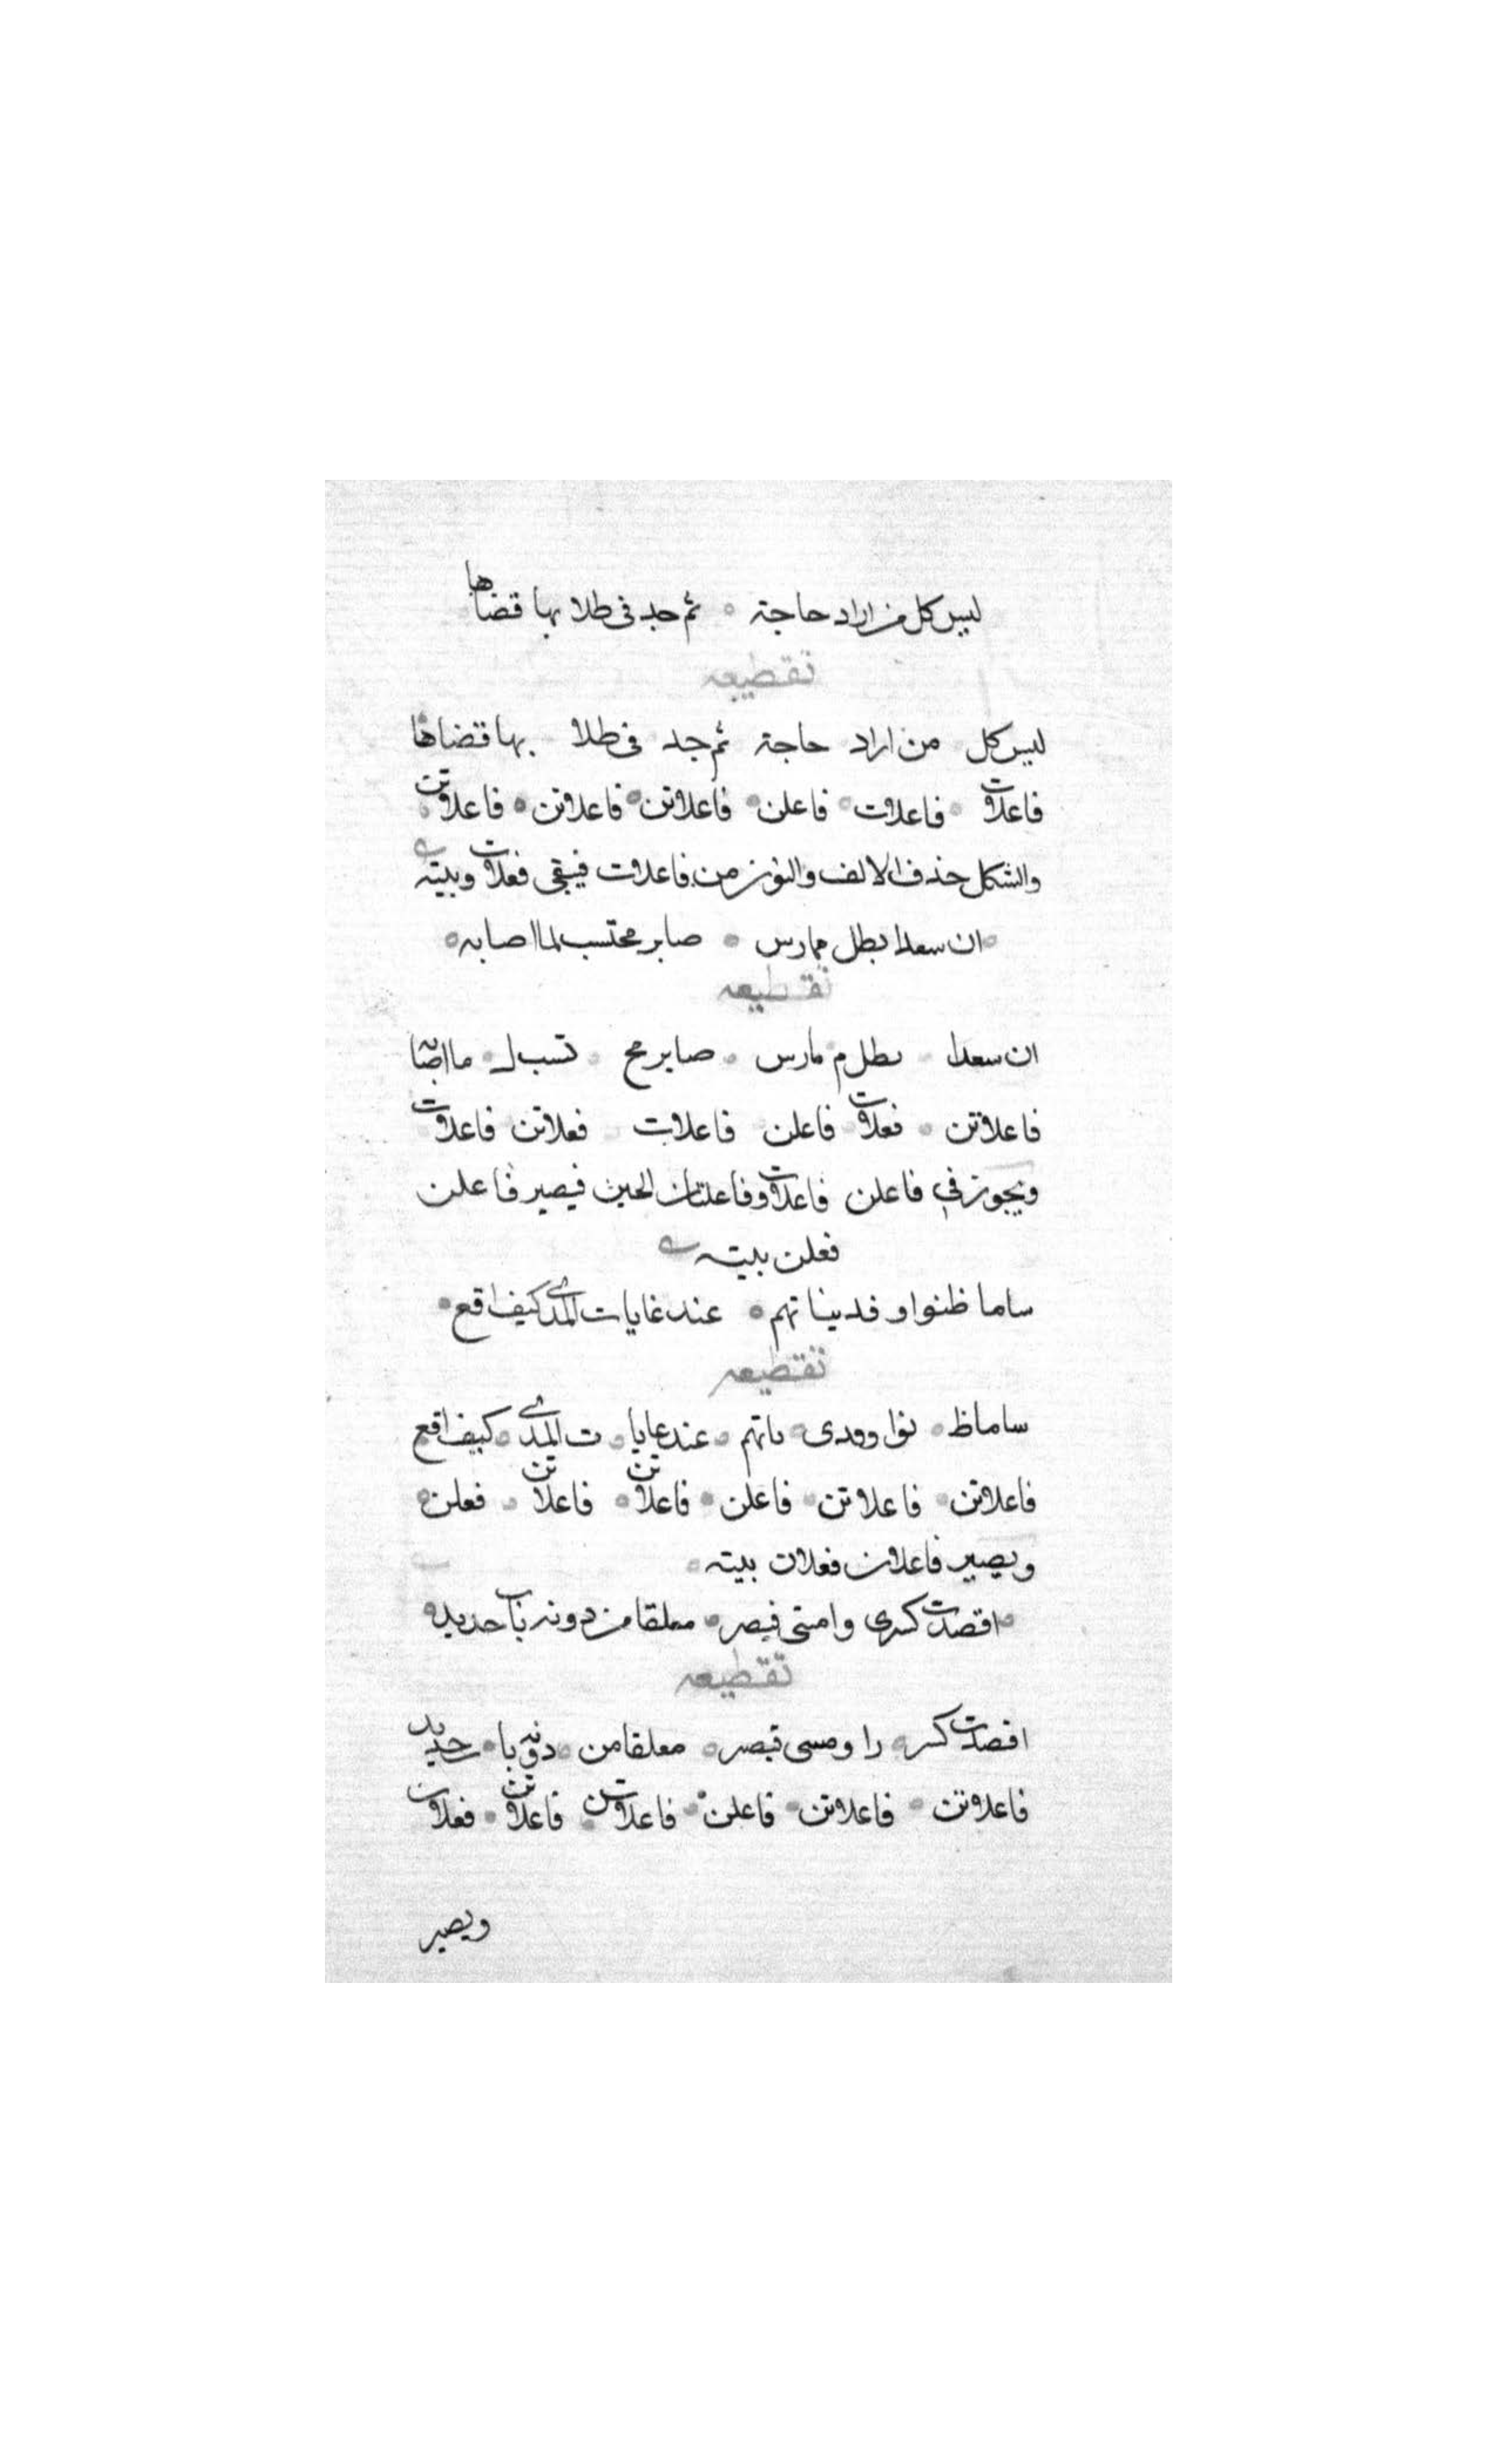 ليس كل من اراد حاجة ثم جد في طلابها قضاها
تقطيعه
ليس كل من اراد حاجة ثم جد في طلا بها قضاها
فاعلات فاعلات فاعلن فاعلاتن فاعلاتن فاعلاتن
والشكل حذف الالف والنون من فاعلات فيبقى فعلات وبيته
ان سعدا بطل ممارس صابر محتسب لما اصابه
تقطيعه
ان سعدا بطل م مارس صابر مح تسب ل ما اصابه
فاعلاتن فعلات فاعلن فاعلات فعلاتن فاعلات
ويجوز في فاعلن فاعلات وفاعلتان الخبن فيصير فاعلن
فعلن بيته
ساما ظنوا و فدينا تهم عند غايات المدى كيف اقع
تقطيعه
ساماظ نوا وودى ناتهم عندعايا ت المدى كيف اقع
فاعلاتن فاعلاتن فاعلن فاعلاتن فاعلاتن فعلن
ويصير فاعلان فعلات بيته
اقصدت كسرى وامسى قيصر معلقا من دونه باب حديد
تقطيعه
اقصدت كسر را ومسى قيصر معلقا من دونه با حديد
فاعلاتن فاعلاتن فاعلن فاعلاتن فاعلاتن فعلات
ويصير